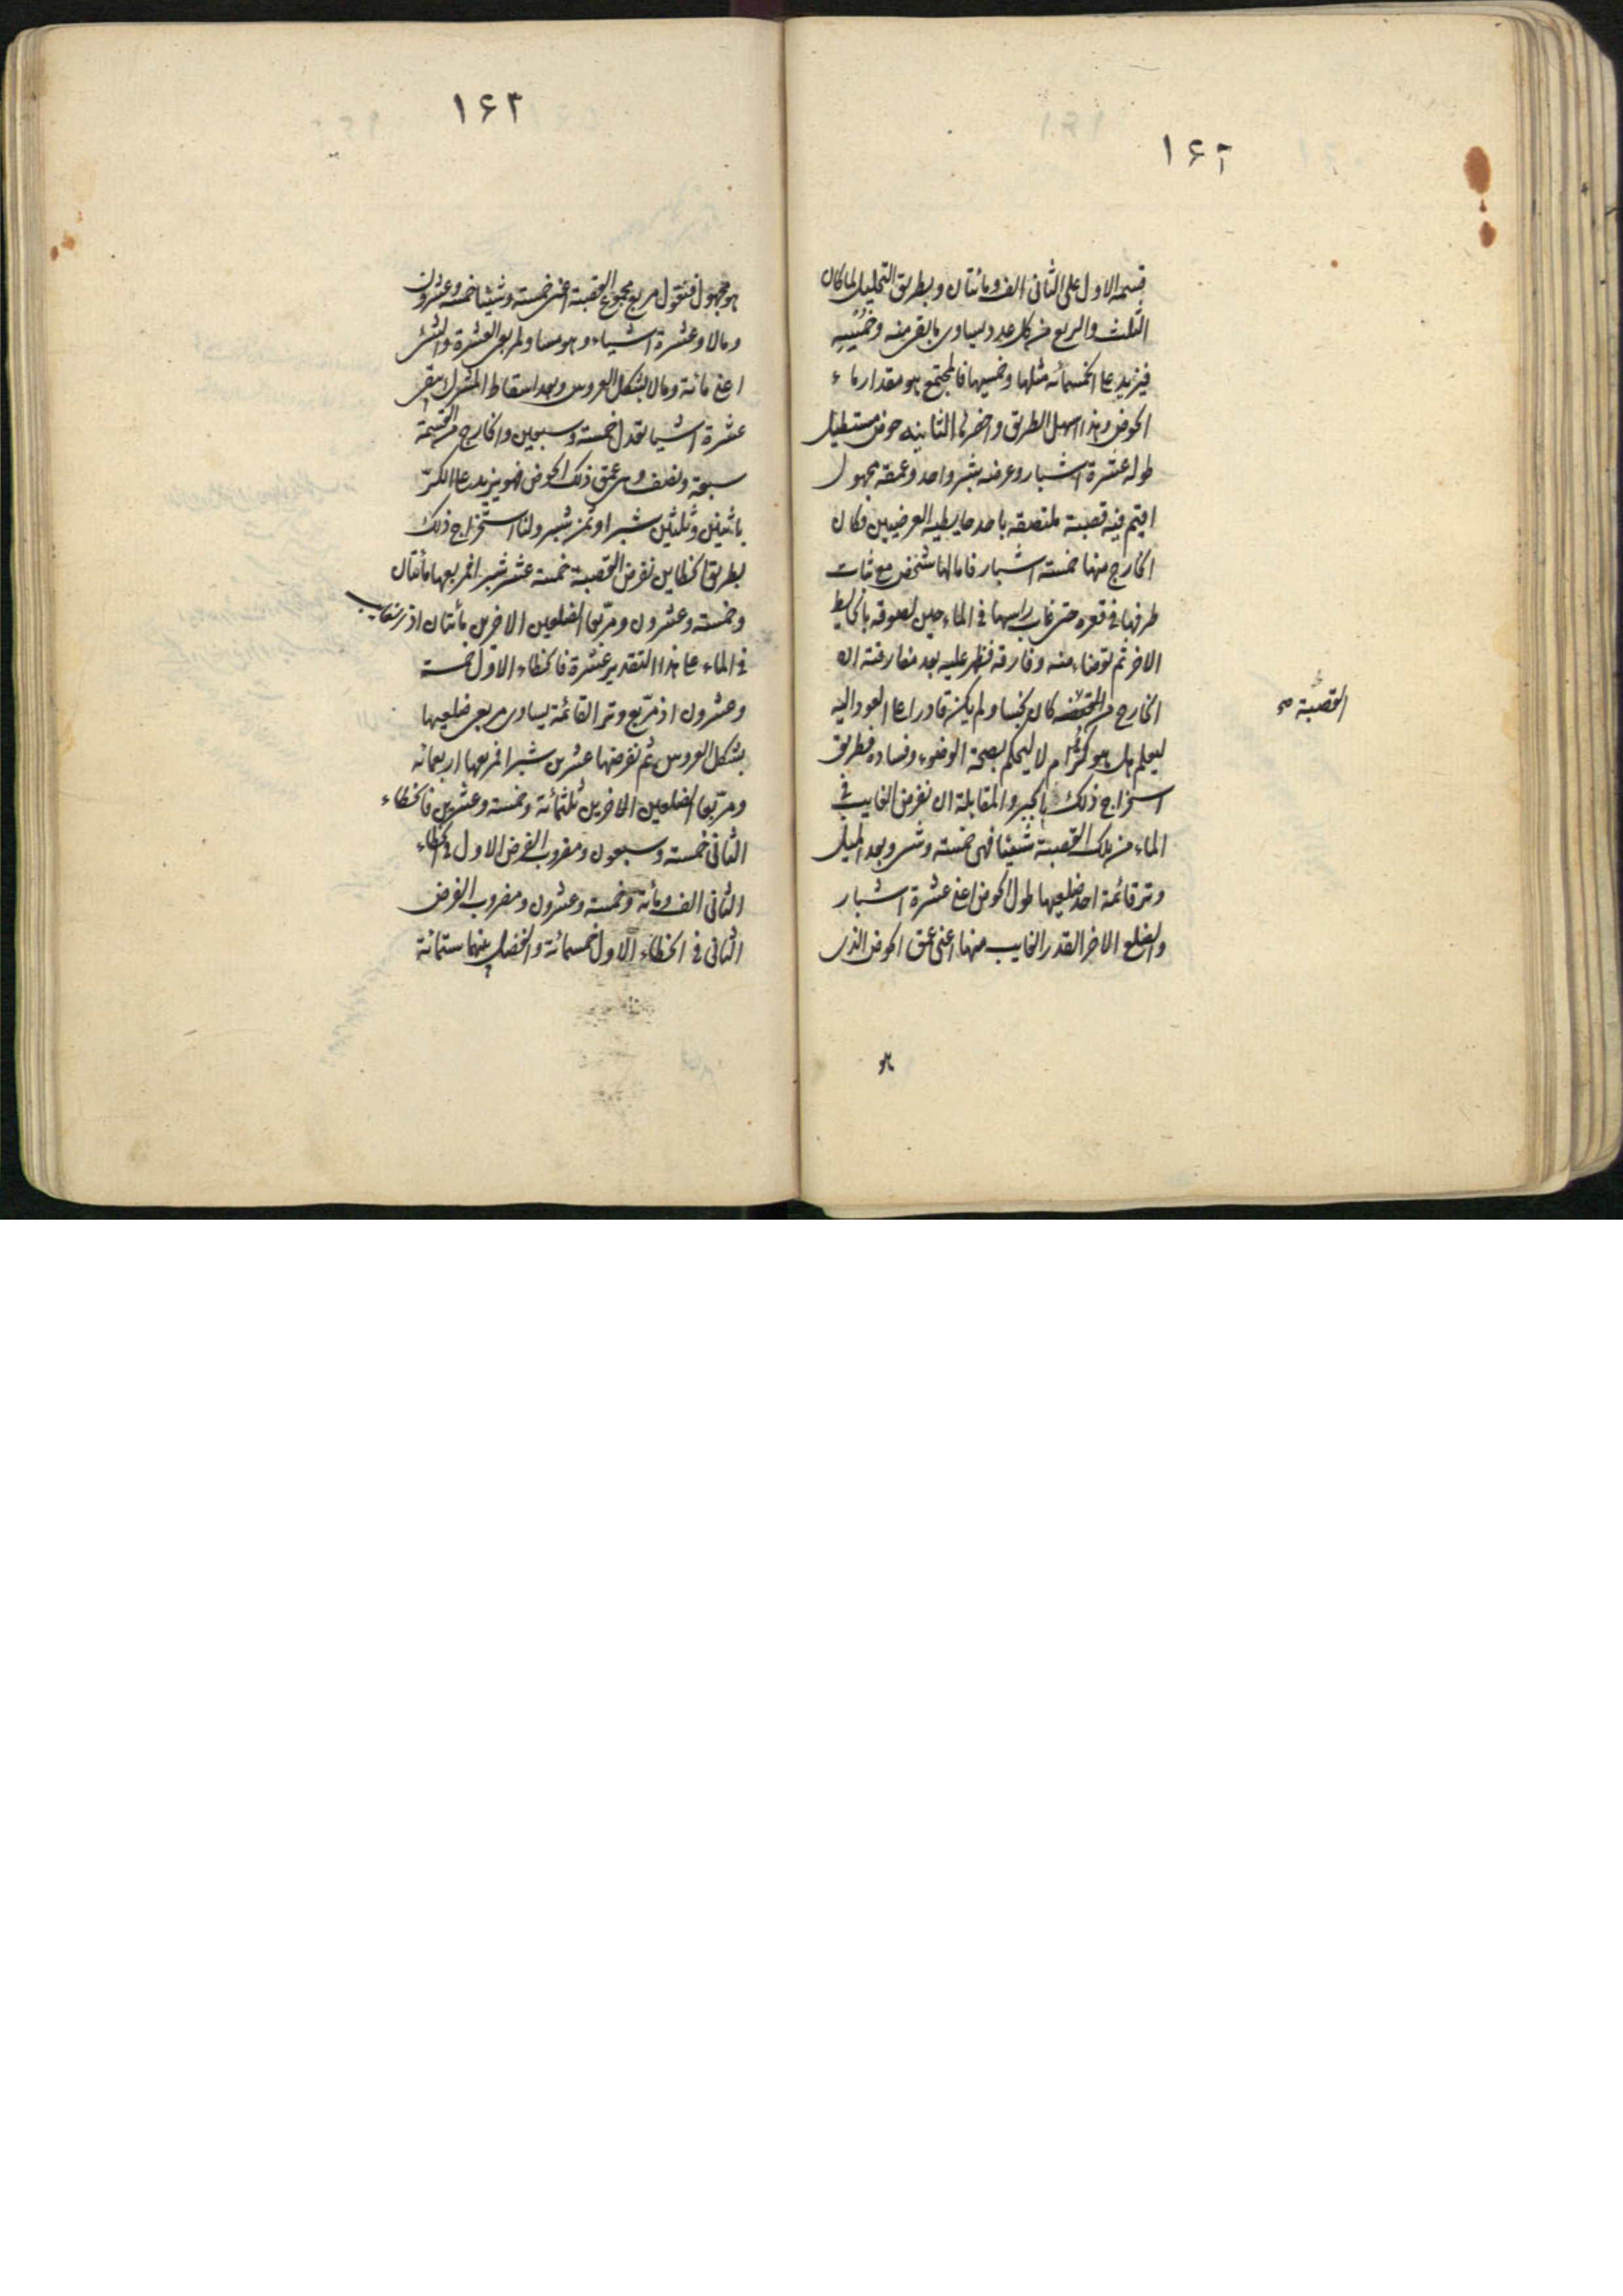 ۱۶۲
قسمه الاول على الثانى الف ومائتان وبطريق التحليل لما كان
الثلث والربع من كل عدد يساوى ما بقى منه وخمسيه
فيزيد على الخمسمائه مثلها وخمسيها فالمجتمع هو مقدار ماء
الحوض وهذا اسهل الطريق واخصرها الثانيه حوض مستطيل
طوله عشرة اشبار وعرضه شبر واحد وعمقه مجهول
اقيم فيه قصبة ملتصقه باحد حايطيه العرضيين وكان
الخارج منها خمسة اشبار فامالها شخص مع ثبات
طرفها فى قعره حتى غاب راسها فى الماء حين لصوقه بالحايط
الاخر ثم توضاء منه وفارقه فظهر عليه بعد مفارقته ان
الخارج من كان نجسا ولم يكن قادرا على العود اليه
القصبة صح
ليعلم هل هو كر ام لا ليحكم بصحة الوضوء وفساده فطريق
استخراج ذلك بالجبر والمقابلة ان نفرض الغايب فى
الماء من تلك القصبة شيئا فهى خمسة وشىء وبعد الميل
وتر قائمة احد ضلعيها طول الحوض اعنى عشرة اشبار
والضلع الاخر القدر الغايب منها اعنى عمق الحوض الذى
هو
۱۶۳
هو مجهول فنقول مربع مجموع القصبة اعنى خمسة وشيئا خمسة وعشرون
ومالا وعشرة اشياء وهو مساو لمربعى العشرة والشئ
اعنى مائة ومالا بشكل العروس وبعد اسقاط المشترك يبقى
عشرة اشيا تعدل خمسة وسبعين والخارج من القسمة
سبعة ونصف وهى عمق ذلك الحوض فهو يزيد على الكر
باثنين وثلثين شبرا وثمن شبر ولنا استخراج ذلك
بطريق الخطاين نفرض القصبة خمسة عشر شبرا فمربعها مائتان
وخمسة وعشرون ومربعا الضلعين الاخرين مائتان اذ الغايب
فى الماء على هذا التقدير عشرة فالخطاء الاول خمسة
وعشرون اذ مربع وتر القائمة يساوى مربعى ضلعيها
بشكل العروس ثم نفرضها عشرين شبرا فمربعها اربعمائه
ومربعا الضلعين الاخرين ثلثمائة وخمسة وعشرين فالخطاء
الثانى خمسة وسبعون ومضروب الفرض الاول فى الخطاء
الثانى الف ومائة وخمسة وعشرون ومضروب الفرض
الثانى فى الخطاء الاول خمسمائة والفضل بينهما ستمائة